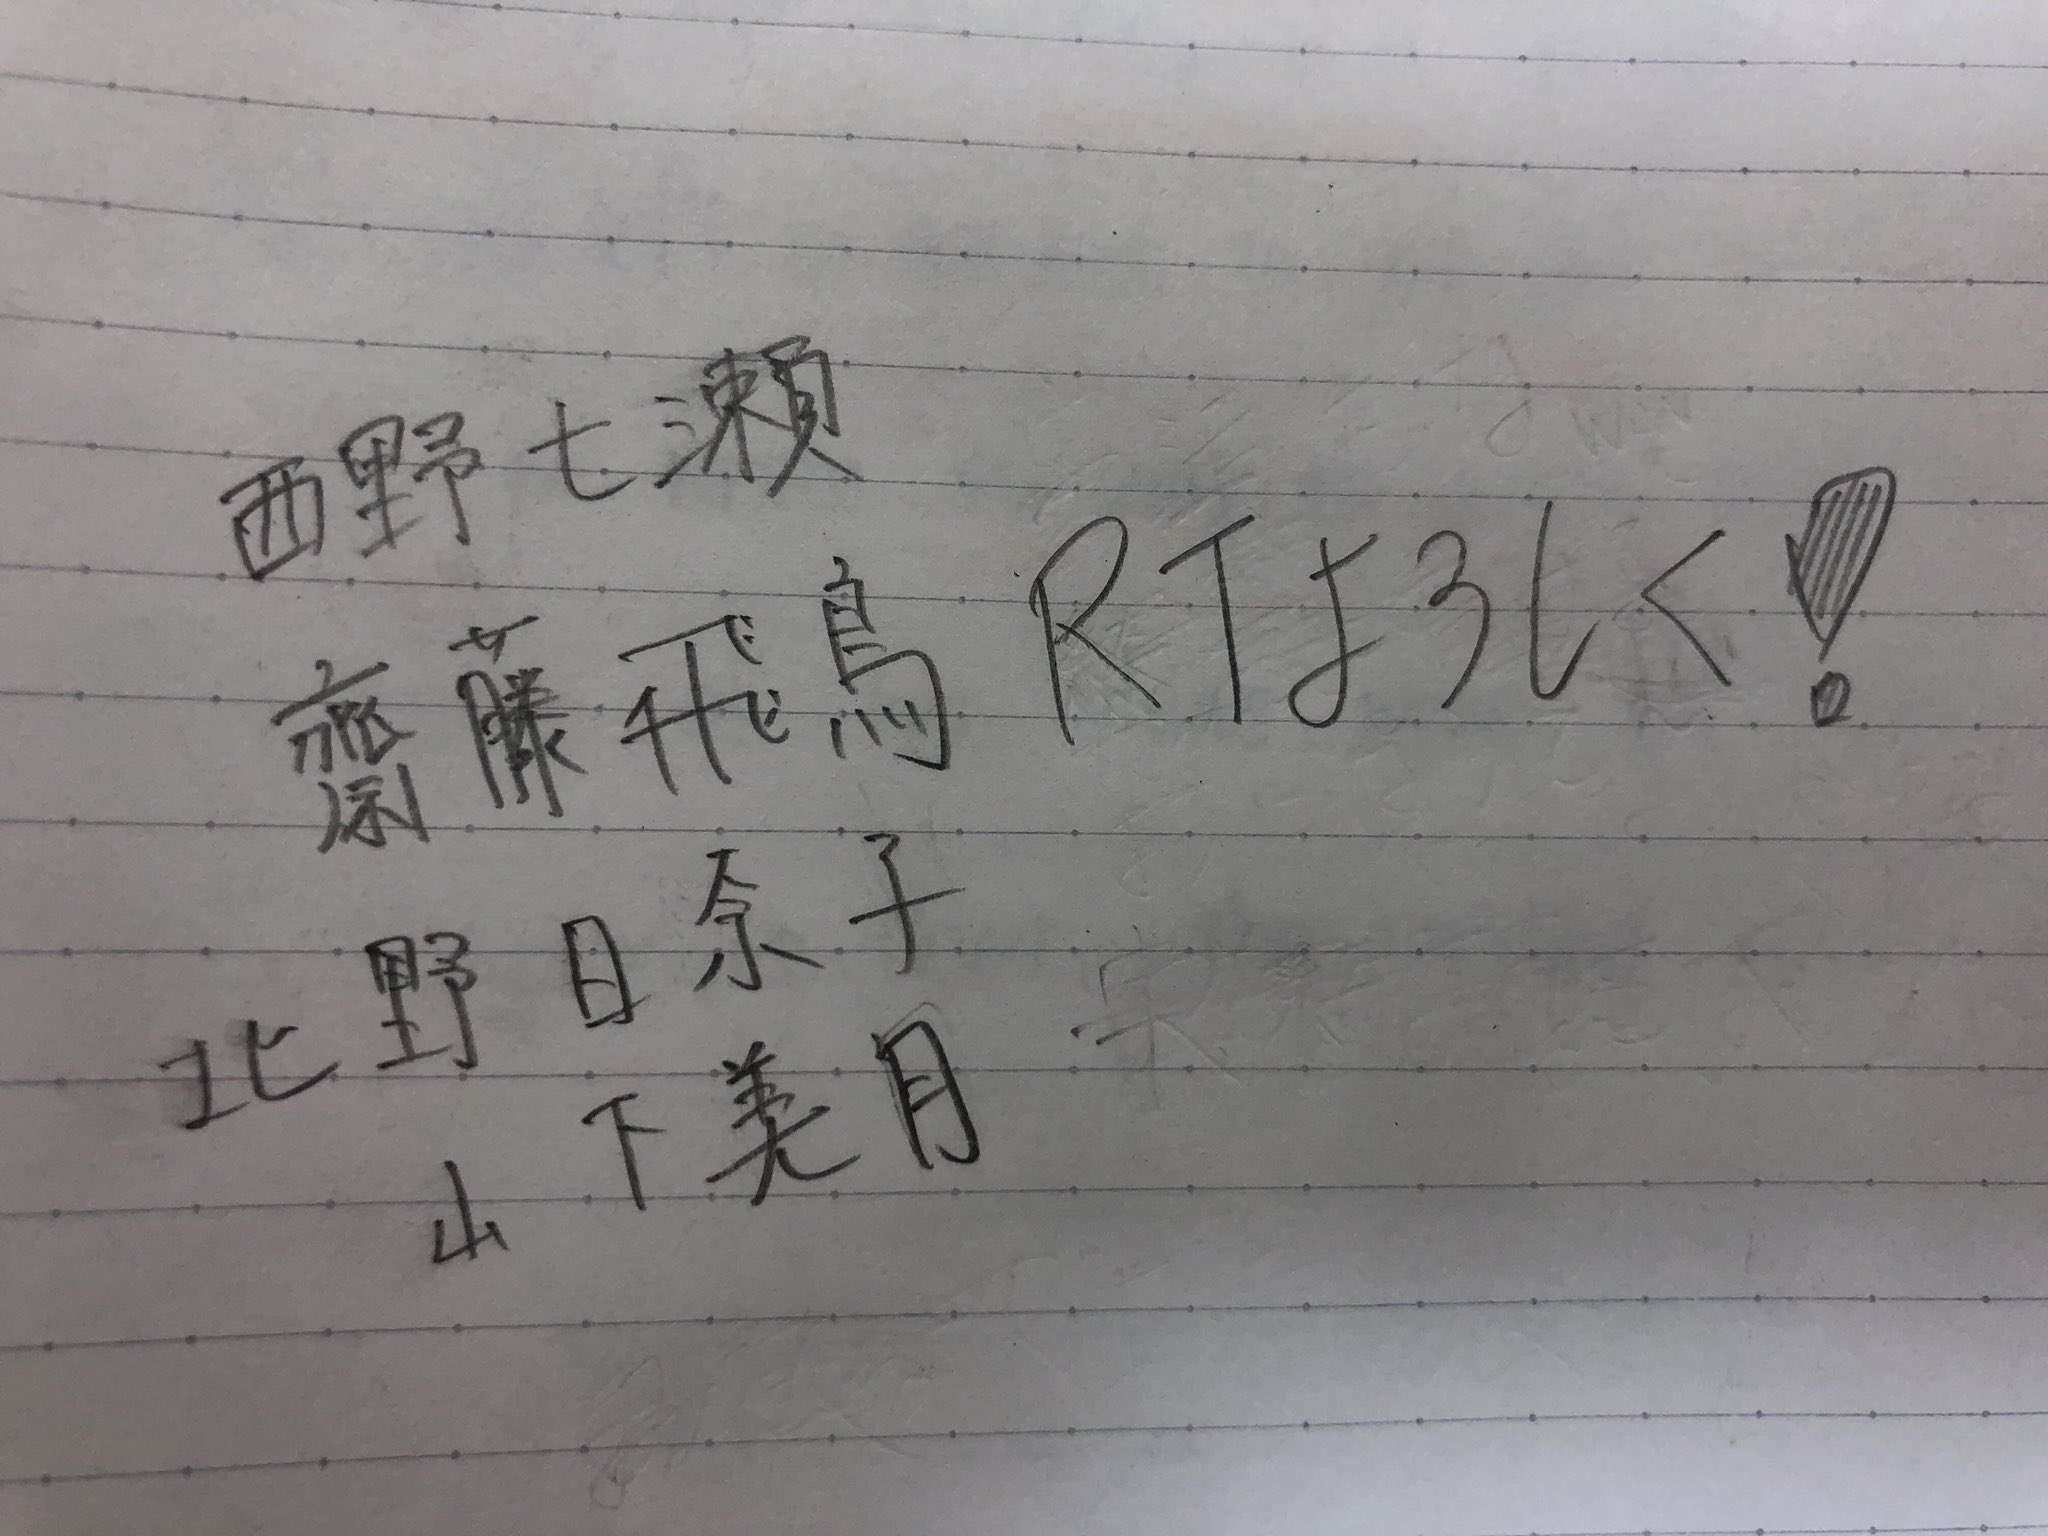 西野七瀬
齋藤飛鳥 RTよろしく!
北野日奈子
山下美月